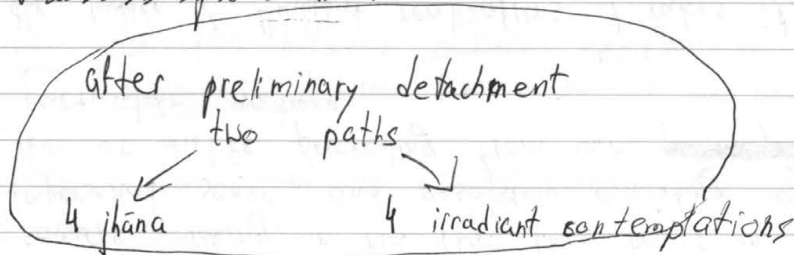 after preliminary detachment
two paths
4 jhāna 4 irradiant contemplations